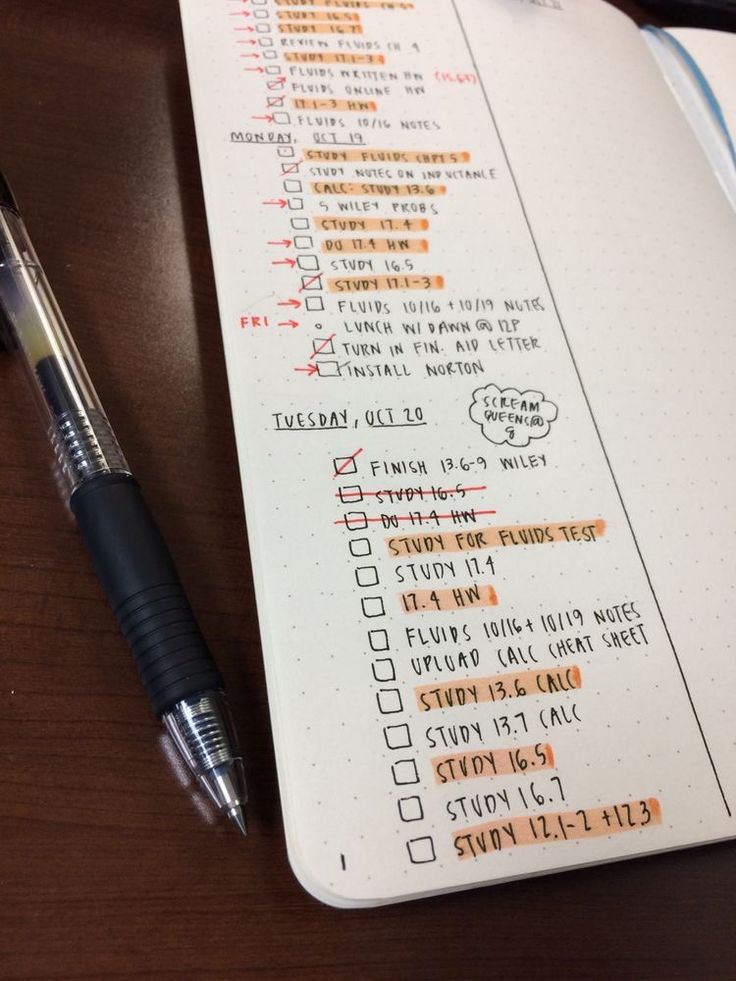 STUDY FLUIDS CH 5
STUDY 16.5
STUDY 16.7
REVIEW FLUIDS CH. 4
STUDY 17.1-3
FLUIDS WRITTEN HW (15.67)
FLUIDS ONLINE HW
17.1-3 HW
FLUIDS 10/16 NOTES
MONDAY, OCT 19
STUDY FLUIDS CHPT 5
STUDY NOTES ON INDUCTANCE
CALC: STUDY 13.6
5 WILEY PROBS
STUDY 17.4
DO 17.4 HW
STUDY 16.5
STUDY 17.1-3
FLUIDS 10/16 + 10/19 NOTES
FRI → LUNCH W/ DAWN @ 12P
TURN IN FIN. AID LETTER
INSTALL NORTON
TUESDAY, OCT 20
SCREAM
QUEENS @
8
FINISH 13.6-9 WILEY
STUDY 16.5
DO 17.4 HW
STUDY FOR FLUIDS TEST
STUDY 17.4
17.4 HW
FLUIDS 10/16 + 10/19 NOTES
UPLOAD CALC CHEAT SHEET
STUDY 13.6 CALC
STUDY 13.7 CALC
STUDY 16.5
STUDY 16.7
STUDY 12.1-2 + 12.3
1